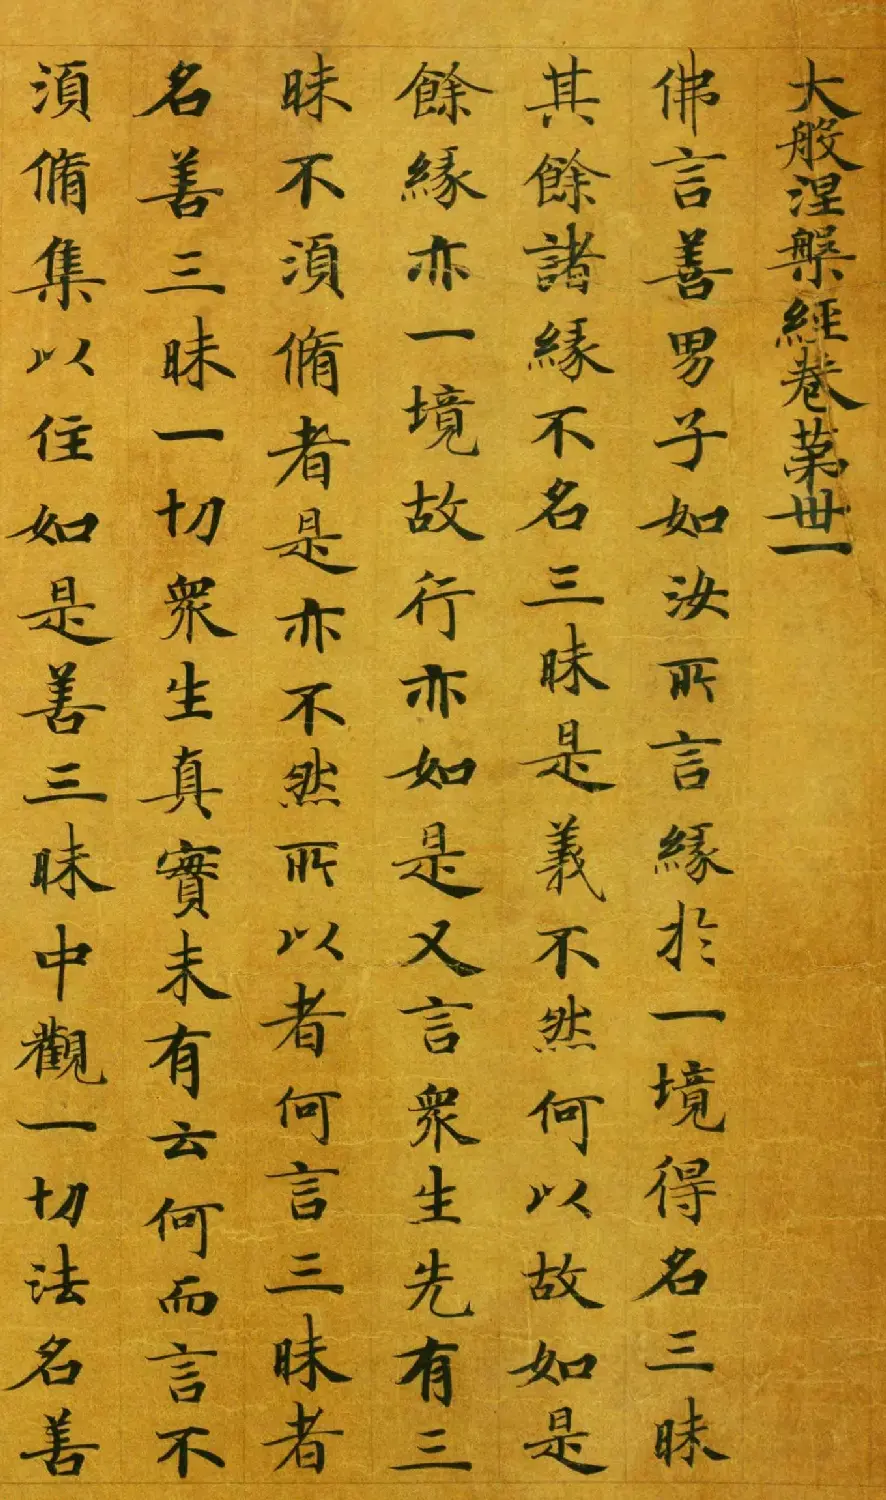 大般涅槃經卷第卅一
佛言善男子如汝所言緣於一境得名三昧
其餘諸緣不名三昧是義不然何以故如是
餘緣亦一境故行亦如是又言衆生先有三
昧不須脩者是亦不然所以者何言三昧者
名善三昧一切衆生真實未有云何而言不
須脩集以住如是善三昧中觀一切法名善